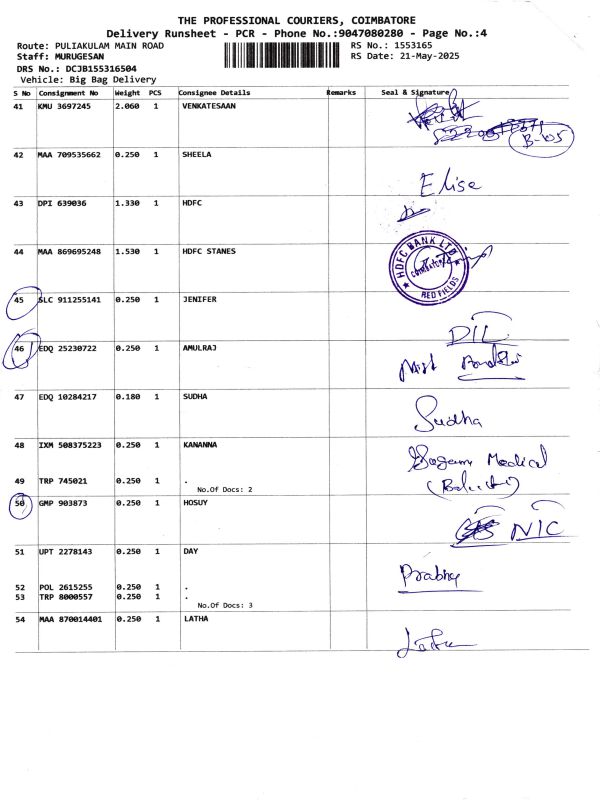 THE PROFESSIONAL COURIERS, COIMBATORE
Delivery Runsheet - PCR - Phone No.:9047080280 - Page No.:4
Route: PULIAKULAM MAIN ROAD RS No.: 1553165
Staff: MURUGESAN RS Date: 21-May-2025
DRS No.: DCJB155316504
Vehicle: Big Bag Delivery
S No Consignment No Weight PCS Consignee Details Remarks Seal & Signature
41 KMU 3697245 2.060 1 VENKATESAAN
B-105
42 MAA 709535662 0.250 1 SHEELA
Elise
43 DPI 639036 1.330 1 HDFC
44 MAA 869695248 1.530 1 HDFC STANES
HDFC BANK LTD
COIMBATORE
RED FIELDS
45 SLC 911255141 0.250 1 JENIFER
DIL
46 EDQ 25230722 0.250 1 AMULRAJ
47 EDQ 10284217 0.180 1 SUDHA
Sudha
48 IXM 508375223 0.250 1 KANANNA
Medical
49 TRP 745021 0.250 1 .
No.Of Docs: 2
50 GMP 903873 0.250 1 HOSUY
NIC
51 UPT 2278143 0.250 1 DAY
Prabhu
52 POL 2615255 0.250 1 .
53 TRP 8000557 0.250 1 .
No.Of Docs: 3
54 MAA 870014401 0.250 1 LATHA